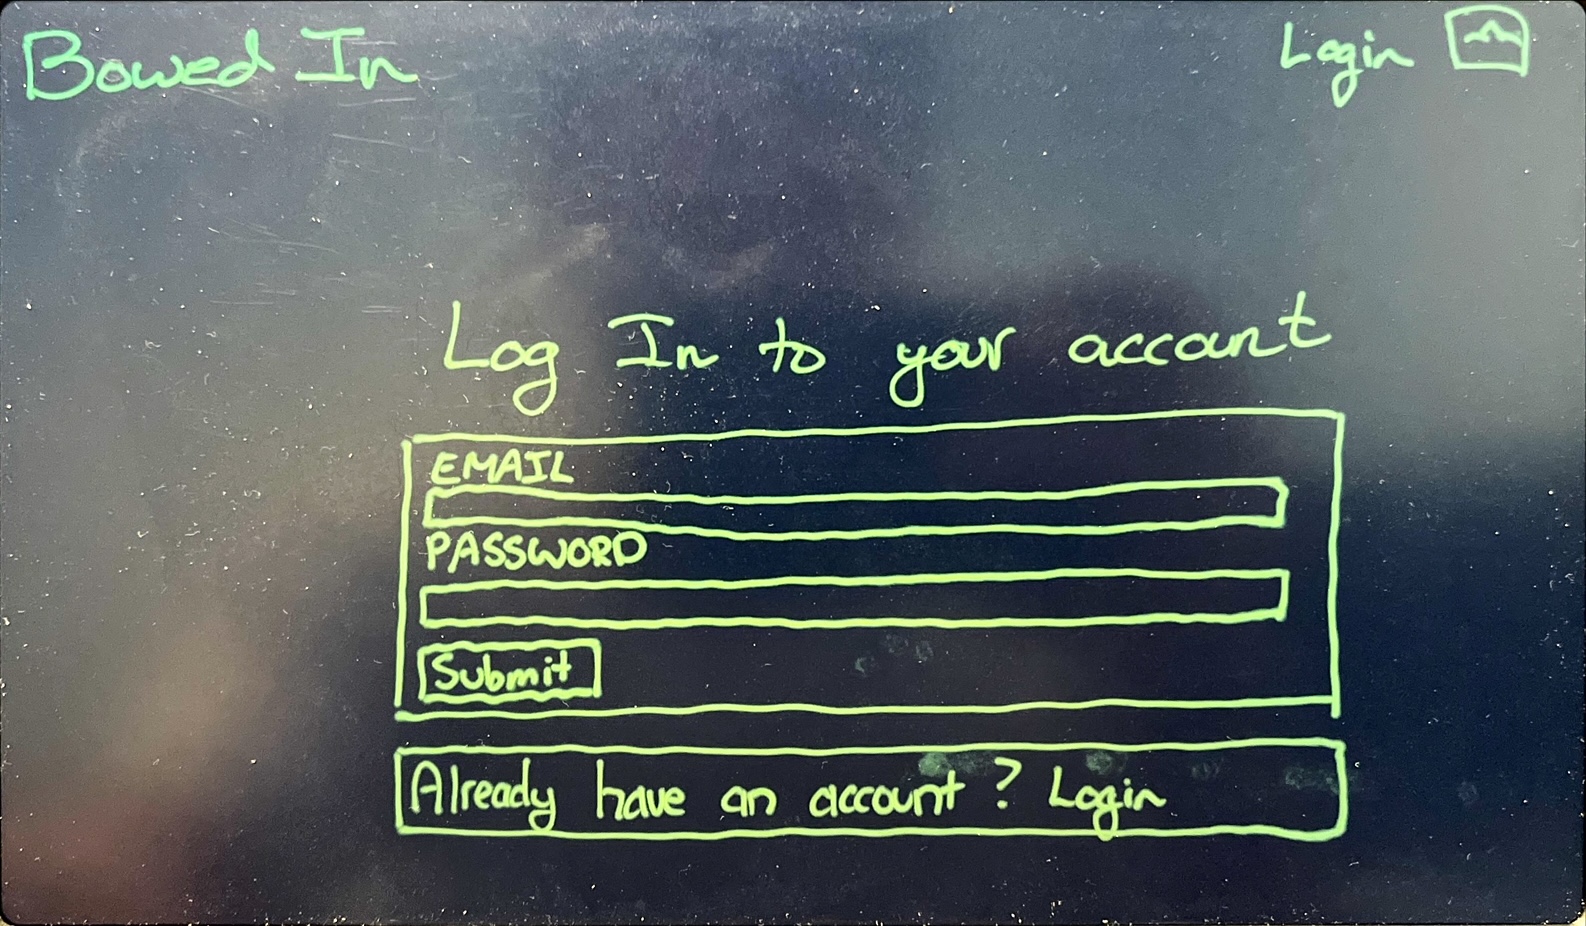 Bowed In
Login
Log In to your account
EMAIL
PASSWORD
Submit
Already have an account? Login